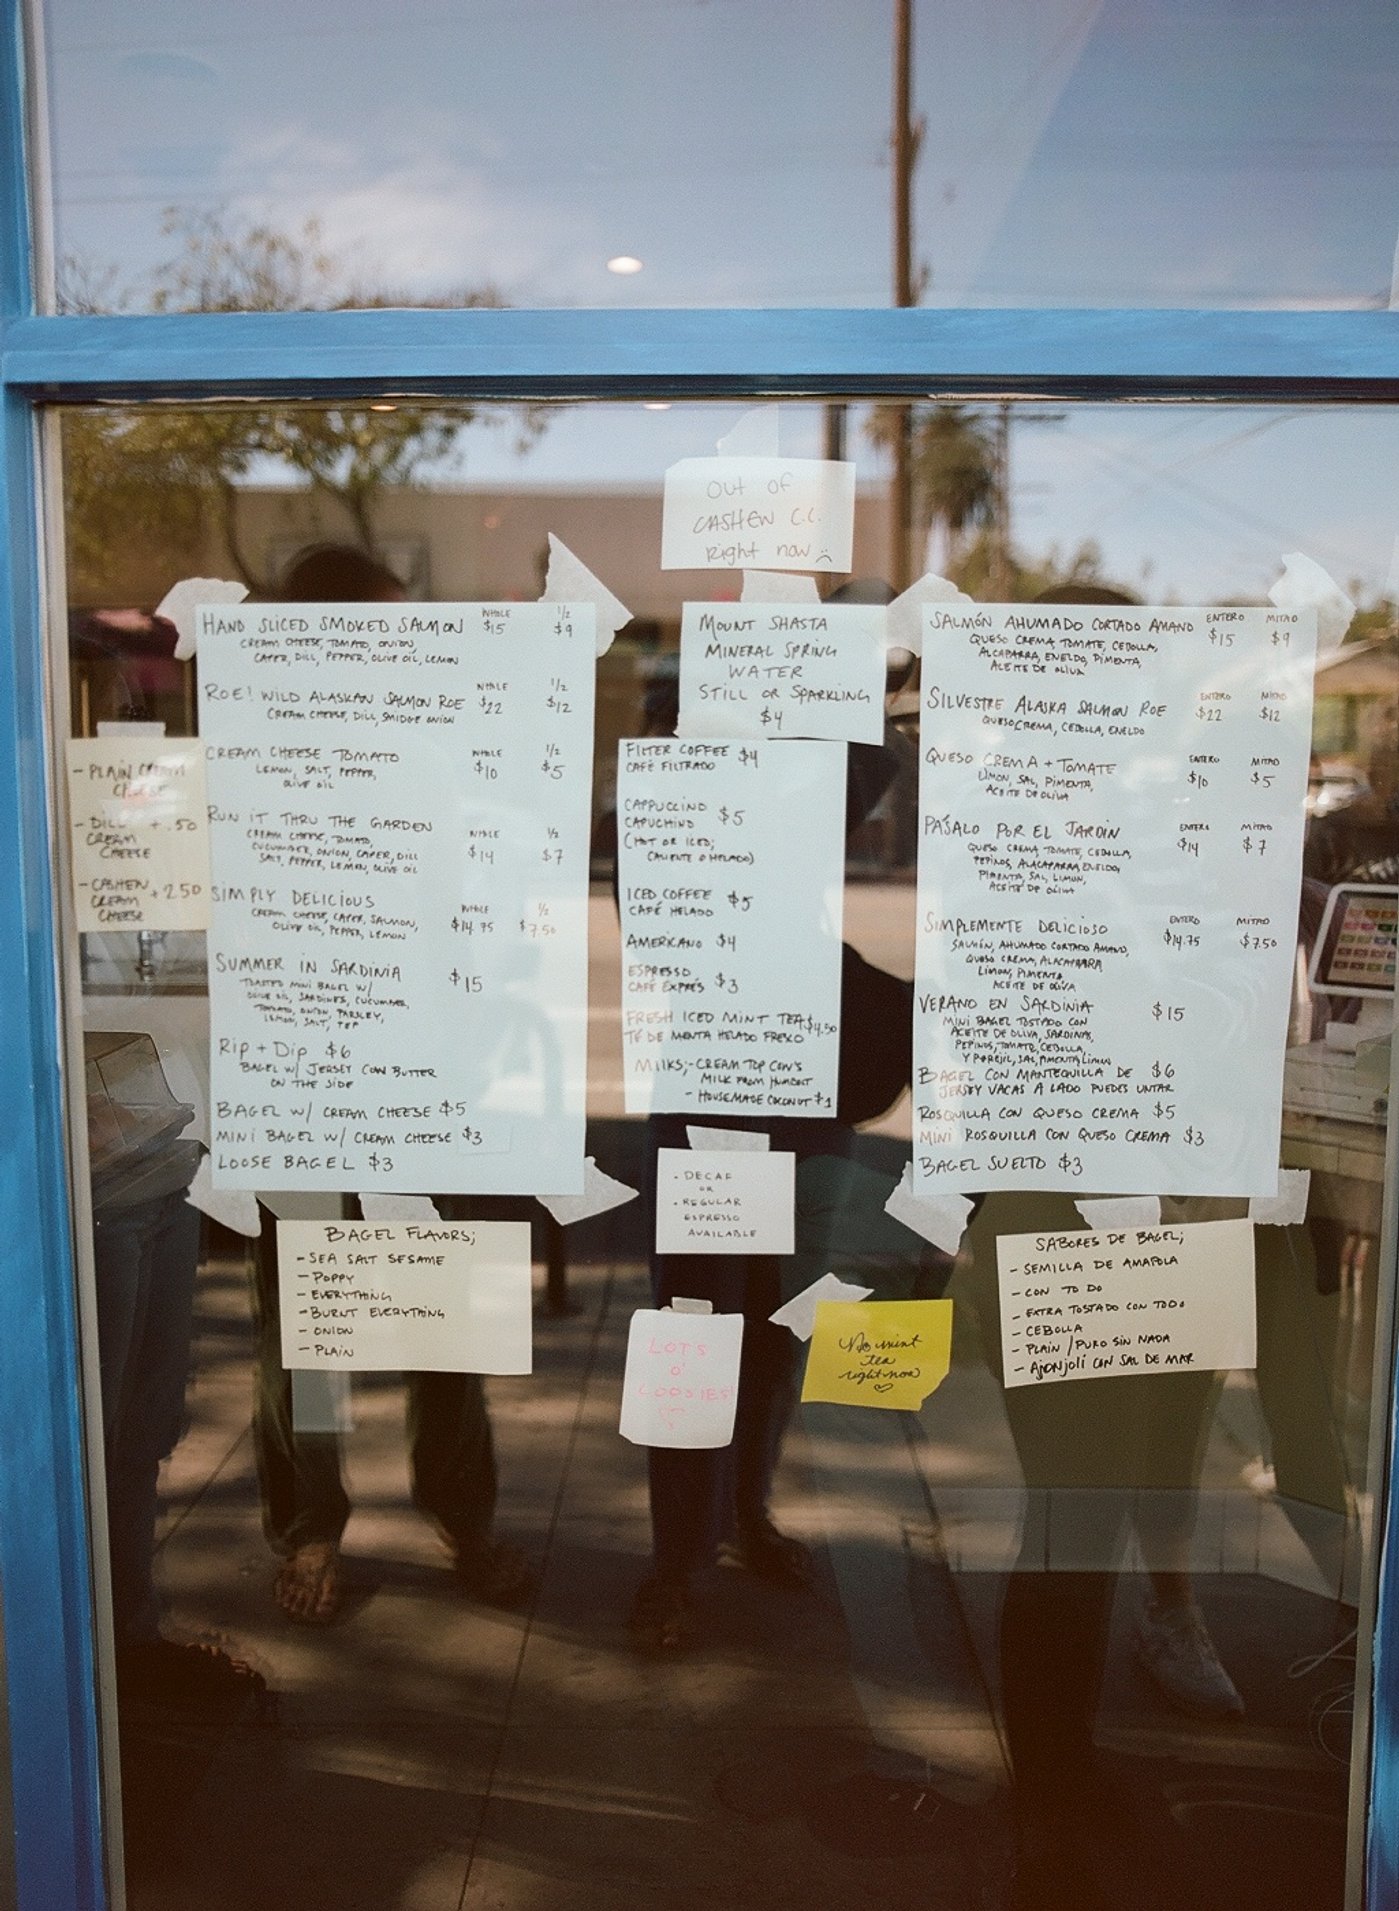 Out of
CASHEW C.C.
right now
HAND SLICED SMOKED SALMON WHOLE $15 1/2 $9
CREAM CHEESE, TOMATO, ONION,
CAPER, DILL, PEPPER, OLIVE OIL, LEMON
ROE! WILD ALASKAN SALMON ROE WHOLE $22 1/2 $12
CREAM CHEESE, DILL SMIDGE ONION
CREAM CHEESE TOMATO WHOLE $10 1/2 $5
LEMON, SALT, PEPPER,
OLIVE OIL
RUN IT THRU THE GARDEN WHOLE $14 1/2 $7
CREAM CHEESE, TOMATO,
CUCUMBER, ONION, CAPER, DILL
SALT, PEPPER, LEMON, OLIVE OIL
SIMPLY DELICIOUS WHOLE $14.75 1/2 $7.50
CREAM CHEESE, CAPER, SALMON,
OLIVE OIL, PEPPER, LEMON
SUMMER IN SARDINIA $15
TOASTED MINI BAGEL W/
OLIVE OIL, SARDINES, CUCUMBER,
TOMATO, ONION, PARSLEY,
LEMON, SALT, PEP
RIP + DIP $6
BAGEL W/ JERSEY COW BUTTER
ON THE SIDE
BAGEL W/ CREAM CHEESE $5
MINI BAGEL W/ CREAM CHEESE $3
LOOSE BAGEL $3
- PLAIN CREAM
CHEESE
- DILL + .50
CREAM
CHEESE
- CASHEW + 2.50
CREAM
CHEESE
MOUNT SHASTA
MINERAL SPRING
WATER
STILL OR SPARKLING
$4
FILTER COFFEE $4
CAFÉ FILTRADO
CAPPUCCINO
CAPUCHINO $5
(HOT OR ICED;
CALIENTE O HELADO)
ICED COFFEE $5
CAFÉ HELADO
AMERICANO $4
ESPRESSO $3
CAFÉ EXPRÉS
FRESH ICED MINT TEA $4.50
TÉ DE MENTA HELADO FRESCO
MILKS; - CREAM TOP COW'S
MILK FROM HUMBOLT
- HOUSEMADE COCONUT $1
SALMÓN AHUMADO CORTADO AMANO ENTERO $15 MITAD $9
QUESO CREMA, TOMATE, CEBOLLA,
ALCAPARRA, ENELDO, PIMENTA,
ACEITE DE OLIVA
SILVESTRE ALASKA SALMON ROE ENTERO $22 MITAD $12
QUESO CREMA, CEBOLLA, ENELDO
QUESO CREMA + TOMATE ENTERO $10 MITAD $5
LIMON, SAL, PIMENTA,
ACEITE DE OLIVA
PÁSALO POR EL JARDIN ENTERO $14 MITAD $7
QUESO CREMA TOMATE, CEBOLLA,
PEPINOS, ALACAPARRA, ENELDO,
PIMENTA, SAL, LIMON,
ACEITE DE OLIVA
SIMPLEMENTE DELICIOSO ENTERO $14.75 MITAD $7.50
SALMÓN, AHUMADO CORTADO AMANO,
QUESO CREMA, ALACAPARA
LIMON, PIMENTA
ACEITE DE OLIVA
VERANO EN SARDINIA $15
MINI BAGEL TOSTADO CON
ACEITE DE OLIVA, SARDINAS,
PEPINOS, TOMATE, CEBOLLA
Y PEREJIL, SAL, PIMENTA, LIMON
BAGEL CON MANTEQUILLA DE $6
JERSEY VACAS A LADO PUEDES UNTAR
ROSQUILLA CON QUESO CREMA $5
MINI ROSQUILLA CON QUESO CREMA $3
BAGEL SUELTO $3
BAGEL FLAVORS;
- SEA SALT SESAME
- POPPY
- EVERYTHING
- BURNT EVERYTHING
- ONION
- PLAIN
. DECAF
OR
. REGULAR
ESPRESSO
AVAILABLE
LOTS
O'
COOSIES!
No mint
tea
right now
SABORES DE BAGEL;
- SEMILLA DE AMAPOLA
- CON TO DO
- EXTRA TOSTADO CON TODO
- CEBOLLA
- PLAIN / PURO SIN NADA
- AJONJOLÍ CON SAL DE MAR